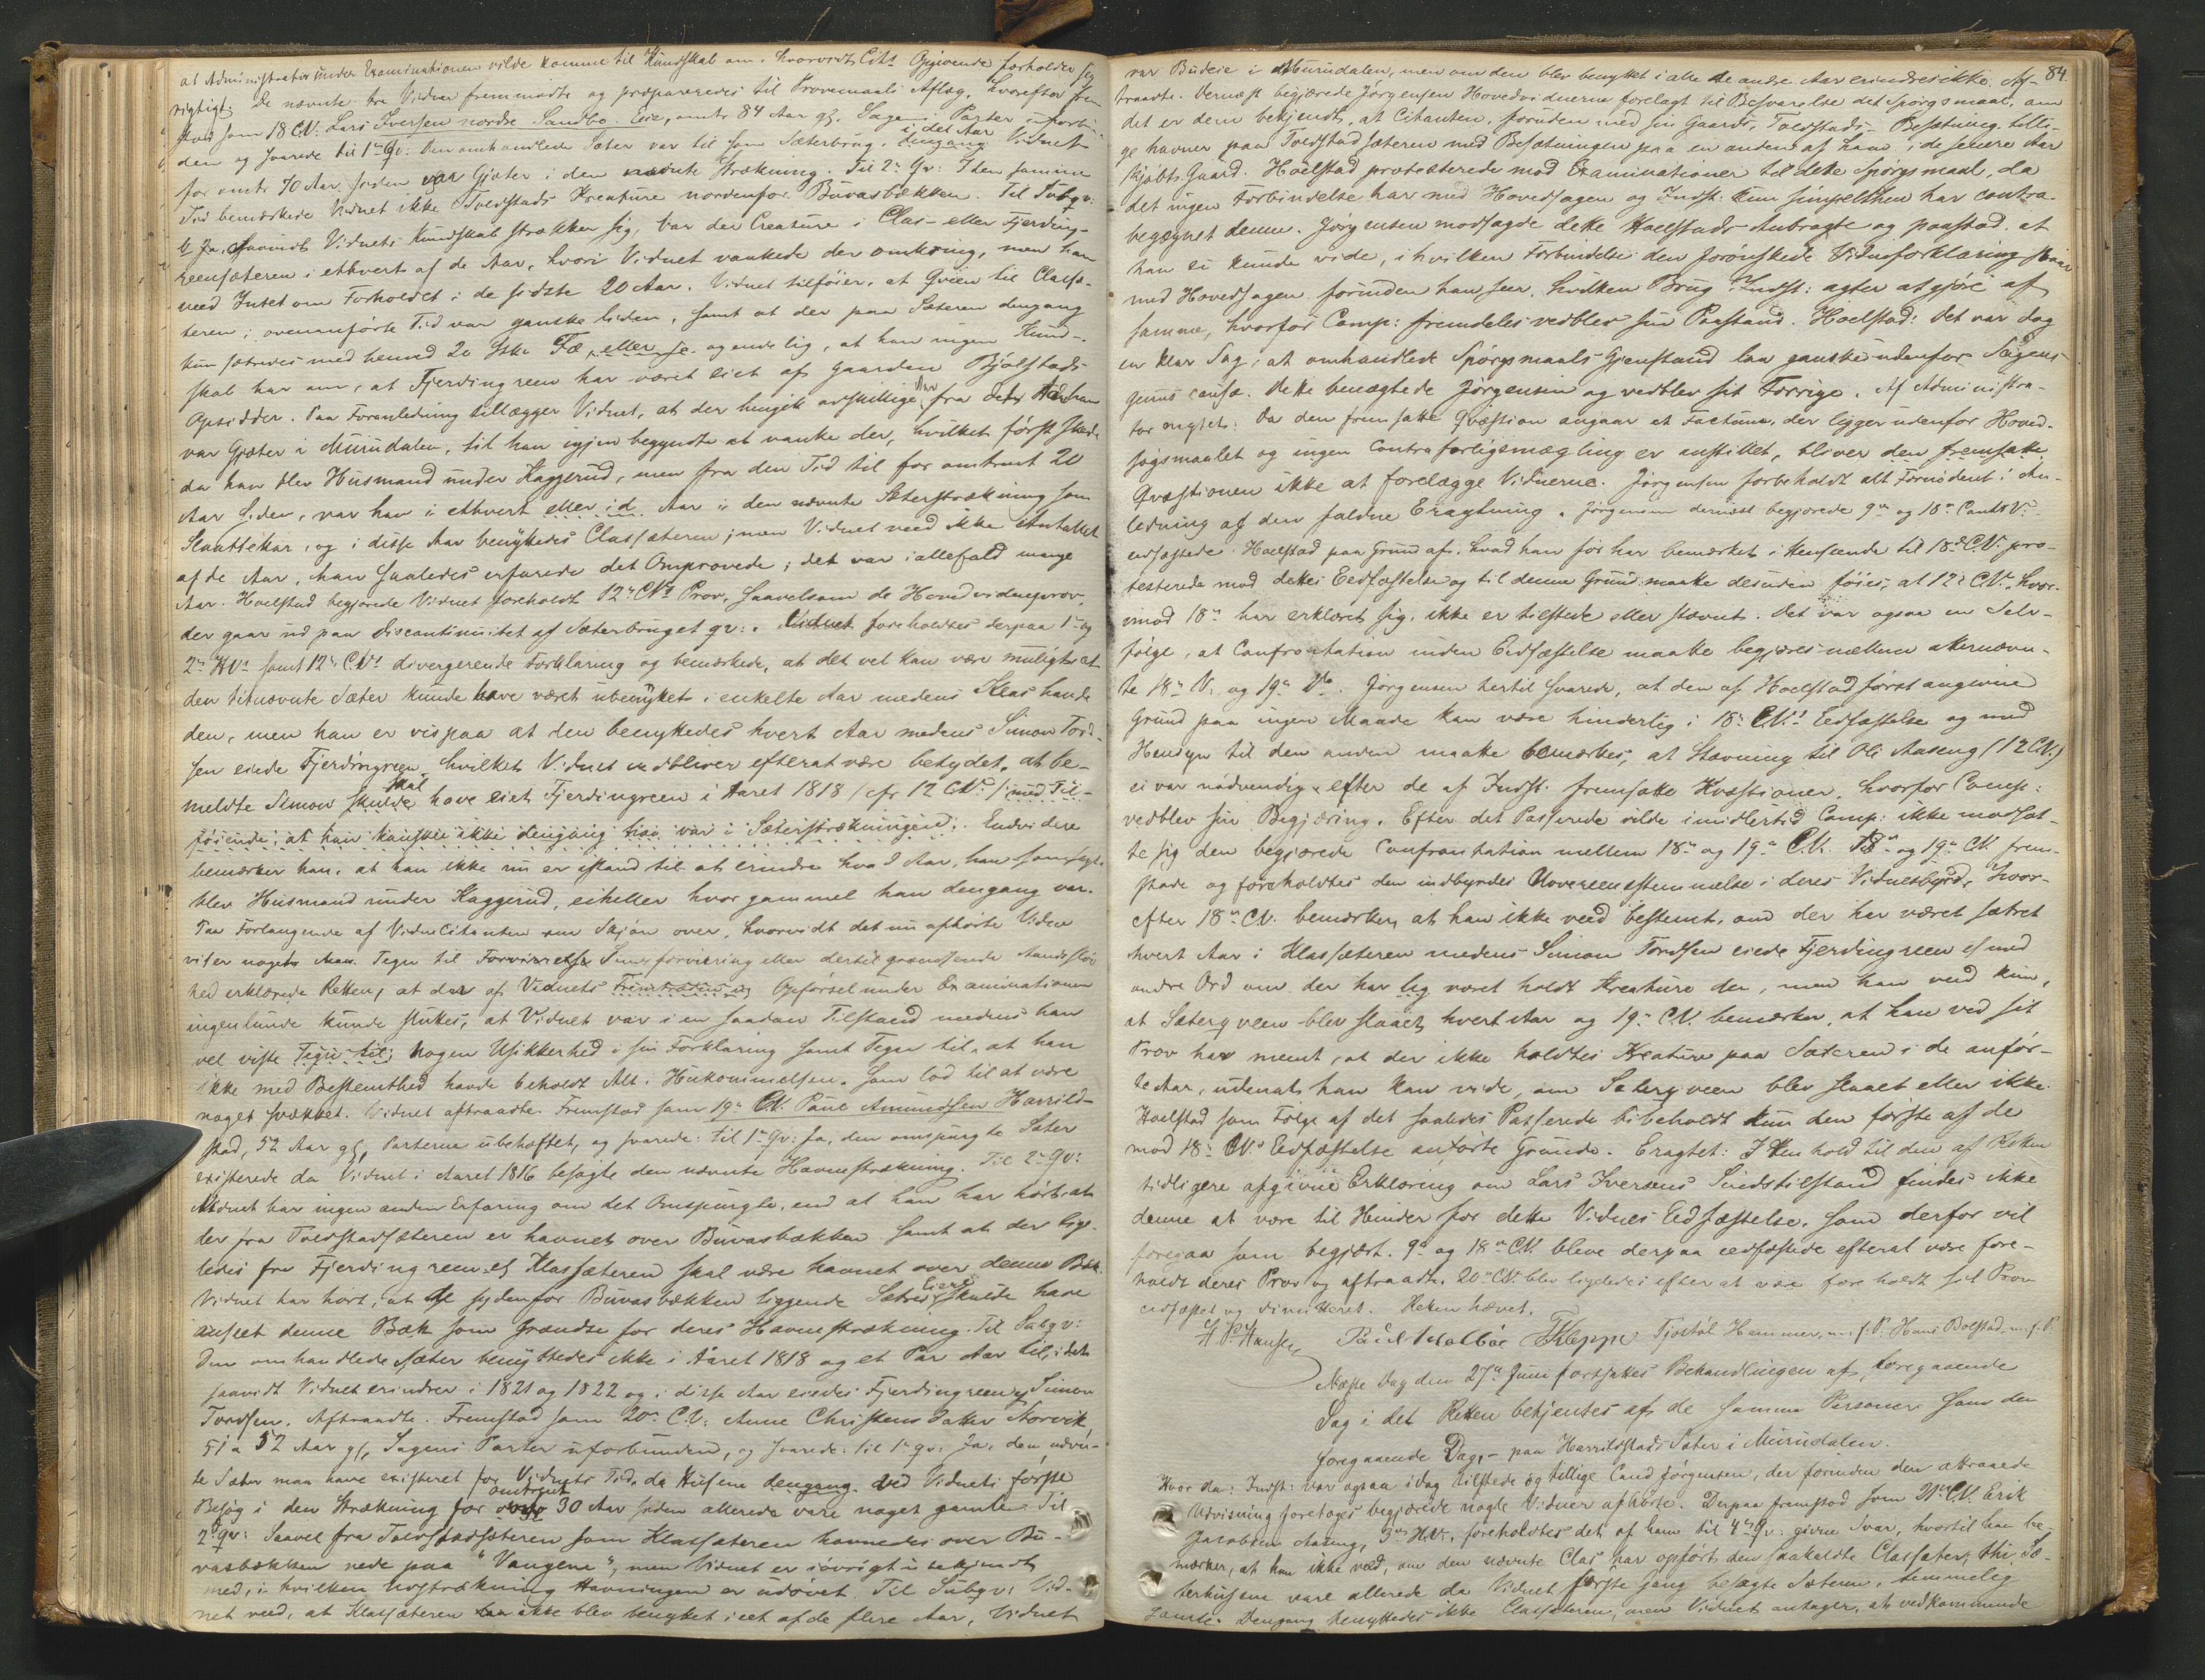 at Administrator under Examinationen vilde komme til Kundskab om, hvorvidt Cits Opgivende forholder sig
rigtigt. De nævnte tre Vidner fremmødte og præpareredes til Provemaals Aflæg, hvorefter frem
stod som 18 C.V: Lars Iversen nordre Sandbo Eie, omtr 84 Aar gl, Sagens Parter uforbun-
den og svarede til 1ste Qv: Den omhandlede Sæter var til som Sæterbrug i det Aar Vidnet
for omtr 70 Aar siden var Gjæter i den nævnte Strækning. Til 2n Qv: I den samme
Tid bemærkede Vidnet ikke Tvedstads Kreature nordenfor Buvasbækken. Til Subqv:
Ja, saavidt Vidnets Kundskab strækker sig, var der Creature i Clas- eller Fjerding-
reensæteren i ethvert af de Aar, hvori Vidnet vankede der omkring, men han
veed Intet om Forholdet i de sidste 20 Aar. Vidnet tilføier, at Qveen til Classæ-
teren i ovenanførte Tid var ganske liden, samt at der paa Sæteren dengang
kun sætredes med henved 20 Stk: Fæ, eller se. og endelig, at han ingen Kund-
skab har om, at Fjerdingreen har været eiet af gaarden Bjølstads
Opsidder. Paa Foranledning tillægger Vidnet, at der hengik adskillige Aar fra den Tid han
var Gjæter i Murudalen, til han igjen begyndte at vanke der, hvilket først skede
da han blev Husmand under Kaggerud, men fra den Tid til for omtrent 20
Aar siden, var han i ethvert eller i d. Aar i den nævnte Sæterstrækning som
Slaattekar, og i disse Aar benyttedes Classæteren; men Vidnet veed ikke Antallet
af de Aar, han saaledes erfarede det Omprovede; det var i allefald mange
Aar. Hoelstad begjærede Vidnet foreholdt 12te C.Vs Prov, saavelsom de Hovedvidneprov,
der gaar ud paa Discontinuitet af Sæterbruget gv:. Vidnet foreholdtes derpaa 1ste og
2n HVs samt 12te C.Vs divergerende Forklaring og bemærkede, at det vel kan være muligt at
den titnævnte Sæter kunde have været ubenyttet i enkelte Aar medens Klas havde
den, men han er vis paa at den benyttedes hvert Aar medens Simon Tord-
sen eiede Fjerdingreen, hvilket Vidnet vedbliver efterat være betydet, at be-
meldte Simon skulde skal have eiet Fjerdingreen i Aaret 1818 /cfr 12 C.V./ med Til-
føiende, at han kanskee ikke dengang var i Sæterstrækningen. Endvidere
bemærker han, at han ikke nu er istand til at erindre hvad Aar, han som sagt
blev Husmand under Kaggerud, eiheller hvor gammel han dengang var.
Paa Forlangende af VidneCitanten om Skjøn over, hvorvidt det nu afhørte Vidne
viser noget Tegn til Forvirrelse Sindsforvirring eller dertil grændsende Aandssløv
hed erklærede Retten, at der af Vidnets Opførsel under Examinationen
ingenlunde kunde sluttes, at Vidnet var i en saadan Tilstand medens han
vel viste Tegn til nogen Usikkerhed i sin Forklaring samt Tegn til at han
ikke med Bestemthed havde beholdt Alt i Hukommelsen, som lod til at være
noget svækket. Vidnet aftraadte. Fremstod som 19de C.V. Poul Amundsen Harrild-
stad, 52 Aar gl, Parterne ubehæftet, og svarede: til 1ste Qv: Ja, den omspurgte Sæter
existerede da Vidnet i Aaret 1816 besøgte den nævnte Havnestrækning. Til 2n Qv:
Vidnet har ingen anden Erfaring om det Omspurgte, end at han har hørt, at
der fra Tvedstadsæteren er havnet over Buvasbækken samt at der lige-
ledes fra Fjerdingreen el Klassæteren skal være havnet over denne Bæk.
Vidnet har hørt, at de søndenfor Buvasbækken liggende Sætres Eiere skulde have
anseet denne Bæk som Grændse for deres Havnestrækning. Til Subqv:
Den omhandlede Sæter benyttedes ikke i Aaret 1818 og et Par Aar til, idet
saavidt Vidnet erindrer i 1821 og 1822 og i disse Aar eiedes Fjerdingreen af Simon
Tordsen. Aftraadte. Fremstod som 20de C.V: Anne Christensdatter Storvik
51 a 52 Aar gl, Sagens Parter uforbunden, og svarede: til 1ste qv: Ja, den nævn-
te Sæter maa have existeret for Vidnets Tid, da Husene dengang ved Vidnets første
Besøg i den Strækning for omtrent 30 Aar siden allerede vare noget gamle. Til
2n Qv: Saavel fra Tvedstadsæteren som Klassæteren havnedes over Bu-
vasbækken nede paa "Vangene", men Vidnet er iøvrigt ubekjendt
med, i hvilken Udstrækning Havningen er udøvet. Til Subqv: Vid-
net veed, at Klassæteren ikke blev benyttet i eet af de flere Aar, Vidnet
84.
var Budeie i Murudalen, men om den blev benyttet i alle de andre Aar erindres ikke. Af-
traadte. Dernæst begjærede Jørgensen Hovedvidnerne forelagt til Besvarelse det Spørgsmaal, om
det er dem bekjendt, at Citanten, foruden med sin Gaards, Tvedstads- Besætning tilli-
ge havner paa Tvedstadsæteren med Besætningen paa en anden af ham i de senere Aar
kjøbt Gaard. Hoelstad protesterede mod Examinationen til dette Spørgsmaal, da
det ingen Forbindelse har med Hovedsagen og Indst: kun simpelthen har contra-
begæret denne. Jørgensen modsagde dette Hoelstads Anbragte og paastod, at
han ei kunde vide, i hvilken Forbindelse den forønskede Vidneforklaring staar
med Hovedsagen forinden han seer, hvilken Brug Indst: agter at gjøre af
samme, hvorfor Comp: fremdeles vedblev sin Paastand. Hoelstad: Det var dog
en klar Sag, at omhandlede Spørgsmaals Gjenstand laa ganske udenfor Sagens
genus causæ. Dette benægtede Jørgensen og vedblev sit Forrige. Af Administra-
tor eragtet: Da den fremsatte Qvæstion angaar et Factum, der ligger udenfor Hoved-
søgsmaalet og ingen Contraforligsmægling er anstillet, bliver den fremsatte
Qvæstionen ikke at forelægge Vidnerne. Jørgensen forbeholdt alt Fornødent i An-
ledning af den faldne Eragtning. Jørgensen dernæst begjærede 9de og 18de ContrV:
edfæstede. Hoelstad paa Grund af, hvad han før har bemærket i Henseende til 18de C.V. pro-
testerede mod dettes Eedfæstelse og til denne Grund maatte desuden føies, at 12te C.V., hvor-
imod 18de har erklæret sig, ikke er tilstede eller stævnt. Det var ogsaa en Selv-
følge, at Confrontation inden Eedfæstelse maatte begjæres mellem alternævn-
te 18de V. og 19de V. Jørgensen hertil svarede, at den af Hoelstad først angivne
Grund paa ingen Maade kan være hinderlig i 18de C.V.s Eedfæstelse og med
Hensyn til den anden maatte bemærkes, at Stævning til Ole Aaseng (12 C.V.)
ei var nødvendig efter de af Indst. fremsatte Kvæstioner, hvorfor Comp:
vedblev sin Begjæring. Efter det Passerede vilde imidlertid Comp: ikke modsæt-
te sig den begjærede Confrontation mellem 18de og 19de C.V. 18de og 19de C.V. frem-
stode og foreholdtes den indbyrdes Uovereensstemmelse i deres Vidnesbyrd, hvor-
efter 18de C.V. bemærker, at han ikke veed bestemt, om der har været sætret
hvert Aar i Klassæteren medens Simon Tordsen eiede Fjerdingreen el med
andre Ord om der har været holdt Kreature der, men han veed kun,
at Sæterqveen blev slaaet hvert Aar og 19de C.V. bemærker, at han ved sit
Prov har ment, at der ikke holdtes Kreature paa Sæteren i de anfør-
te Aar, udenat han kan vide, om Sæterqveen blev slaaet eller ikke.
Hoelstad som Følge af det saaledes Passerede bibeholdt kun den første af de
mod 18de C.V.s Eedfæstelse anførte Grunde. Eragtet: I Henhold til den af Retten
tidligere afgivne Erklæring om Lars Iversens Sindstilstand findes ikke
denne at være til Hinder for dette Vidnes Eedfæstelse, som derfor vil
foregaa som begjært. 9de og 18de C.V. bleve derpaa eedfæstede efterat være fore-
holdt deres Prov og aftraadte. 20de C.V. blev ligeledes efter at være foreholdt sit Prov
eedfæstet og dimitteret. Retten hævet.
H P Hansen Paul Kleppe Tjøstol Hammer, m. f. P. Hans Bolstad m. f. P
Næste Dag den 27de Juni fortsattes Behandlingen af foregaaende
Sag i det Retten betjentes af de samme Personer som den
foregaaende Dag, - paa Harrildstads Sæter i Murudalen.
Hvor da: Indst: var ogsaa idag tilstede og tillige Cand Jørgensen, der forinden den attraaede
Udvisning foretages begjærede nogle Vidner afhørte. Derpaa fremstod som 21de C.V. Erik
Jacobsen Aaseng, 3de H.V., foreholdtes det af ham til 4de Qv: givne Svar, hvortil han be-
mærker, at han ikke veed, om den nævnte Clas har opført den saakaldte Classæter, thi Sæ-
terhusene vare allerede da Vidnet første Gang besøgte Sæteren, temmelig
gamle. Dengang benyttedes ikke Classæteren, men Vidnet antager, at vedkommende